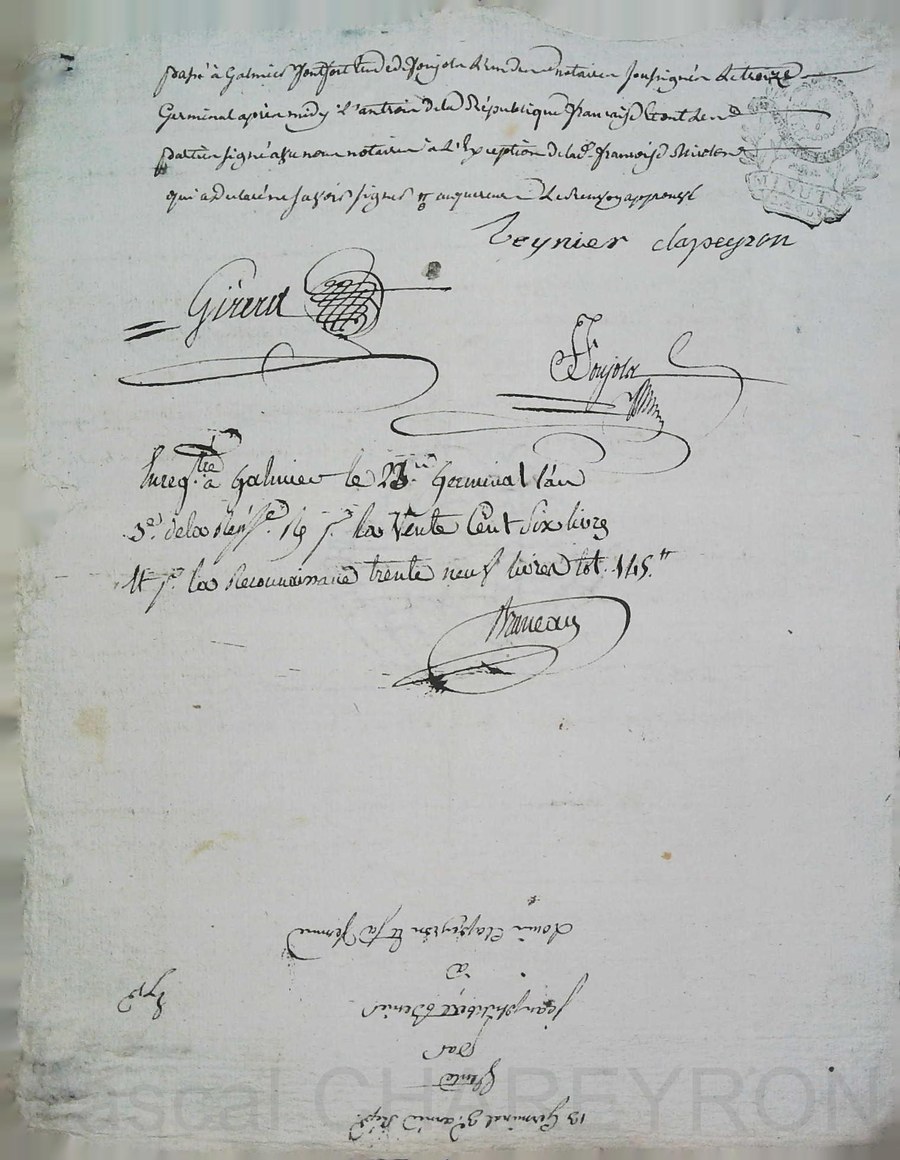 passé à Galmier Montfort Etude de Poujola L'un des notaires soussignés Le treize
Germinal après midy L'an trois de la République française Et ont Les
parties signé avec nous notaires à L'Exception de la d. françoise
qui a declaré ne savoir signer acquereur approuvé
teynier clapeyron
Girard
Poujola
Enreg.tré à Galmier le 23 Germinal l'an
3e de la Rep. f.se la Vente Cent Six livres
la Reconnaissance trente neuf livres tot. 145.tt
MINUT
13 Germinal 3e année Rep.
Vente
par
jean philibert Denis
à
Louis Clapeyron Et sa femme
Pascal CHAREYRON